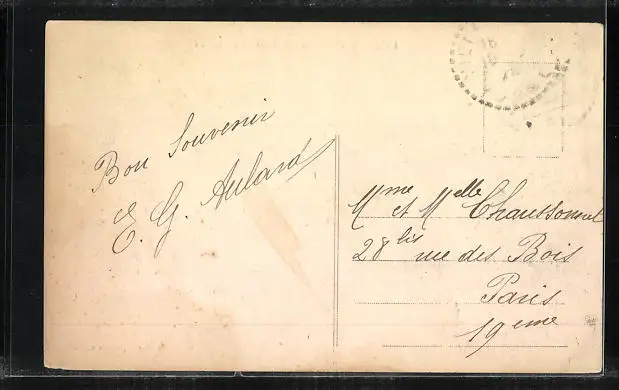 Bon Souvenir
E. G. Aulard
Mme et Melle Chaussonnet
28 bis rue des Bois
Paris
19eme